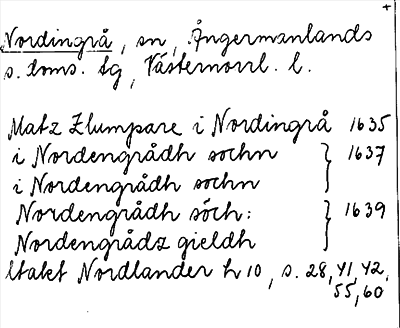 +
Nordingrå, sn, Ångermanlands
s. doms. tg, Västernorrl. l.
Matz Zlumpare i Nordingrå 1635
i Nordengrådh sochn } 1637
i Nordengrådh sochn
Nordengrådh söch: } 1639
Nordengrådz gieldh
Utakt Nordlander h 10, s. 28, 41, 42,
55, 60